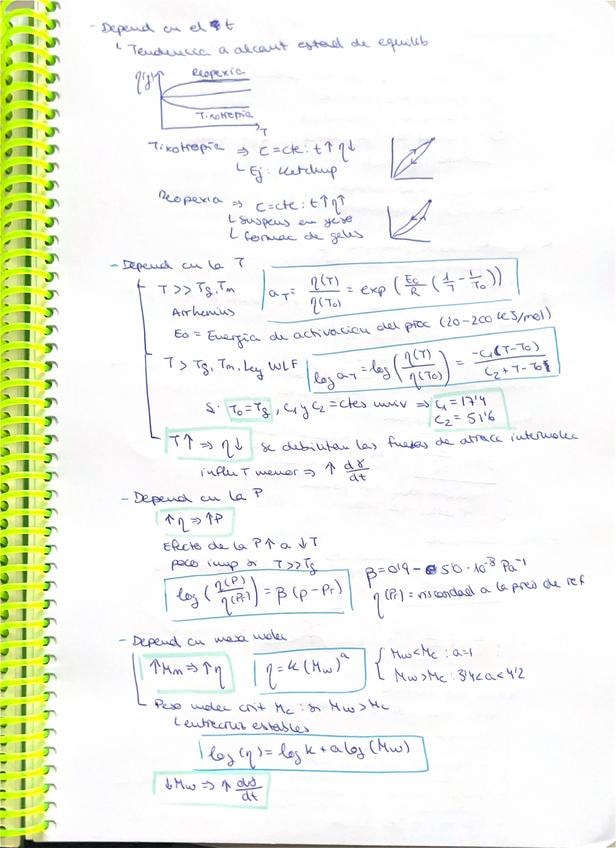 - Depend cn el t
└ Tendencia a alcanz estad de equilib
η(γ̇)
Reopexia
Tixotropia
T
Tixotropia ⇒ τ = cte : t↑ η↓
└ Ej: Ketchup
Reopexia ⇒ τ = cte : t↑ η↑
└ suspens en yeso
└ formac de geles
- Depend cn la T
T >> Tg, Tm
a_T = η(T)/η(T₀) = exp (E₀/R (1/T - 1/T₀))
Arrhenius
E₀ = Energía de activación del proc (20-200 KJ/mol)
T > Tg, Tm. Ley WLF
log a_T = log (η(T)/η(T₀)) = -C₁(T-T₀)/C₂+T-T₀
Si T₀ = Tg, C₁ y C₂ = ctes univ ⇒ C₁ = 17'4
C₂ = 51'6
T↑ ⇒ η↓ se debilitan las fuerzas de atracc intermolec
influ T menor ⇒ ↑ dγ/dt
- Depend cn la P
↑η ⇒ ↑P
Efecto de la P↑ a ↓T
poco imp si T >> Tg
log (η(P)/η(Pr)) = β (p - Pr)
β = 0'19 - 50 · 10⁻⁸ Pa⁻¹
η(Pr) = viscosidad a la pres de ref
- Depend cn masa molec
↑Mm ⇒ ↑η
η = K (Mw)ᵃ
Mw < Mc : a=1
Mw > Mc : 3'4 < a < 4'2
└ Peso molec crit Mc : si Mw > Mc
└ entrecruz estables
log (η) = log k + a log (Mw)
↓Mw ⇒ ↑ dγ/dt